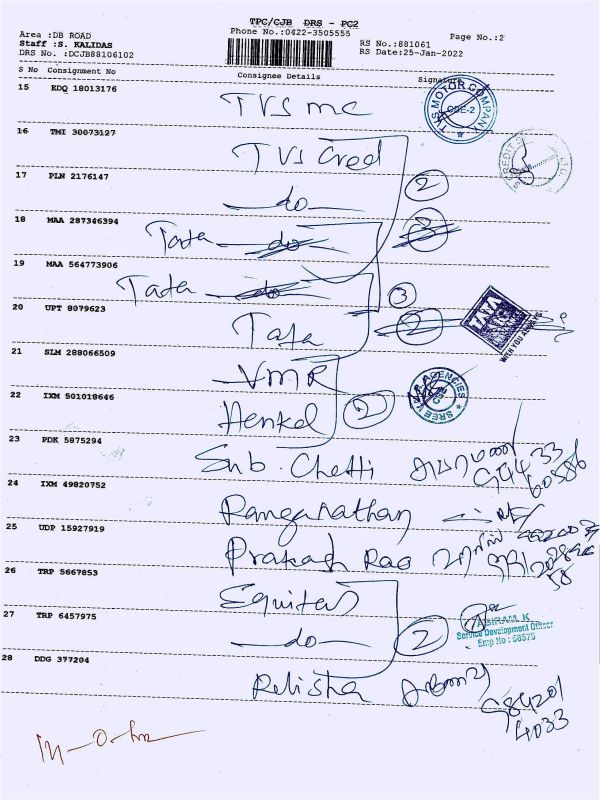 TPC/CJB DRS - PC2
Area :DB ROAD
Phone No.:0422-3505555
Page No.:2
Staff :S. KALIDAS
RS No.:881061
DRS No. :DCJB88106102
RS Date:25-Jan-2022
S No Consignment No Consignee Details Signature
15 EDQ 18013176
TVS mc
TVS MOTOR COMPANY
CBE-2
16 TMI 30073127
TVS Cred
17 PLN 2176147
do
2
18 MAA 287346394
Tata do
3
19 MAA 564773906
Tata do
3
20 UPT 8079623
Tata
2
TATA
21 SLM 288066509
VMR
22 IXM 501018646
Henkel
2
23 PDK 5875294
Sub. Chetti
99433
60586
24 IXM 49820752
Ranganathan
25 UDP 15927919
Prakash Rao
26 TRP 5667853
Equitas
27 TRP 6457975
do
2
ABIRAM.K
Service Development Officer
Emp No : 58575
28 DDG 377204
Relisha
98420
4033